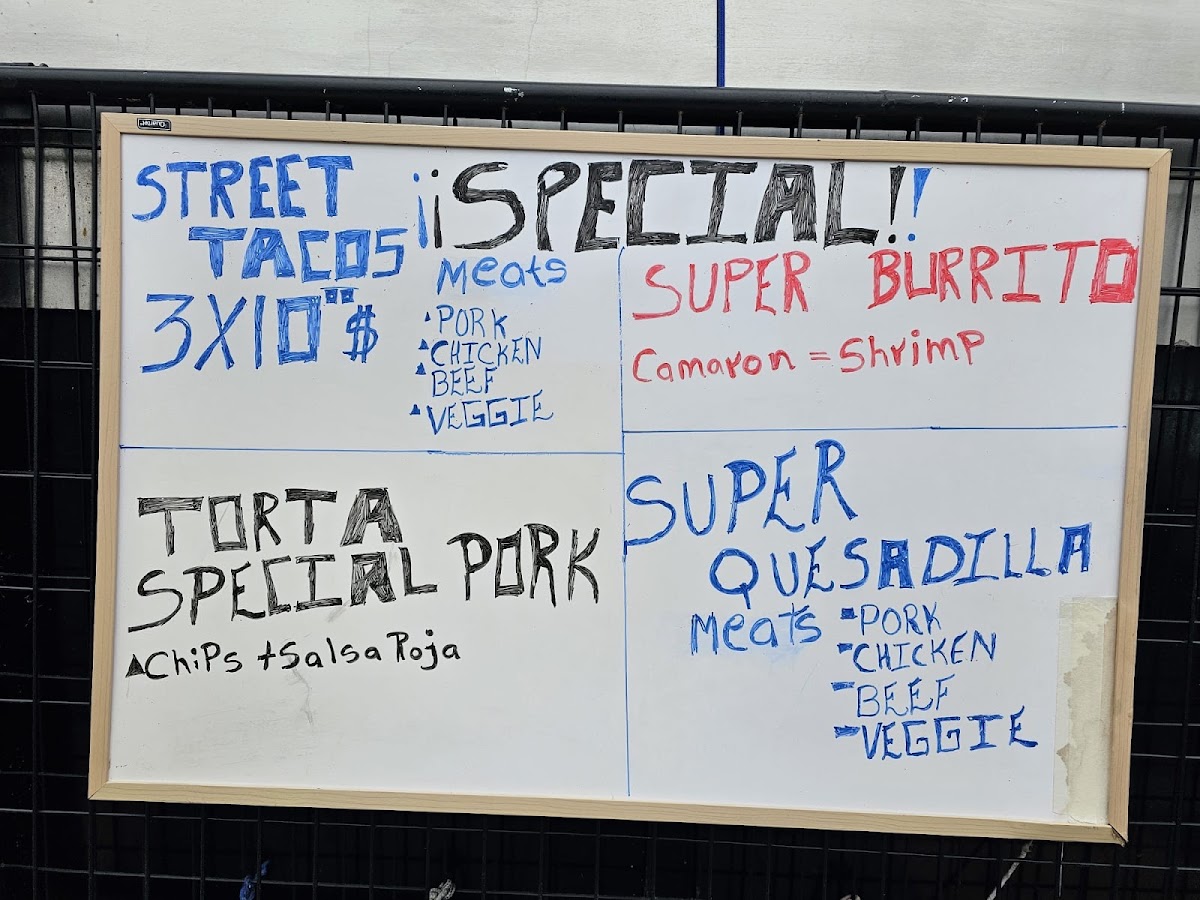 ¡¡SPECIAL!!
STREET
TACOS
3X10°°$
Meats
PORK
CHICKEN
BEEF
VEGGIE
SUPER BURRITO
Camaron = Shrimp
TORTA
SPECIAL PORK
ChiPs + Salsa Roja
SUPER
QUESADILLA
Meats
PORK
CHICKEN
BEEF
VEGGIE